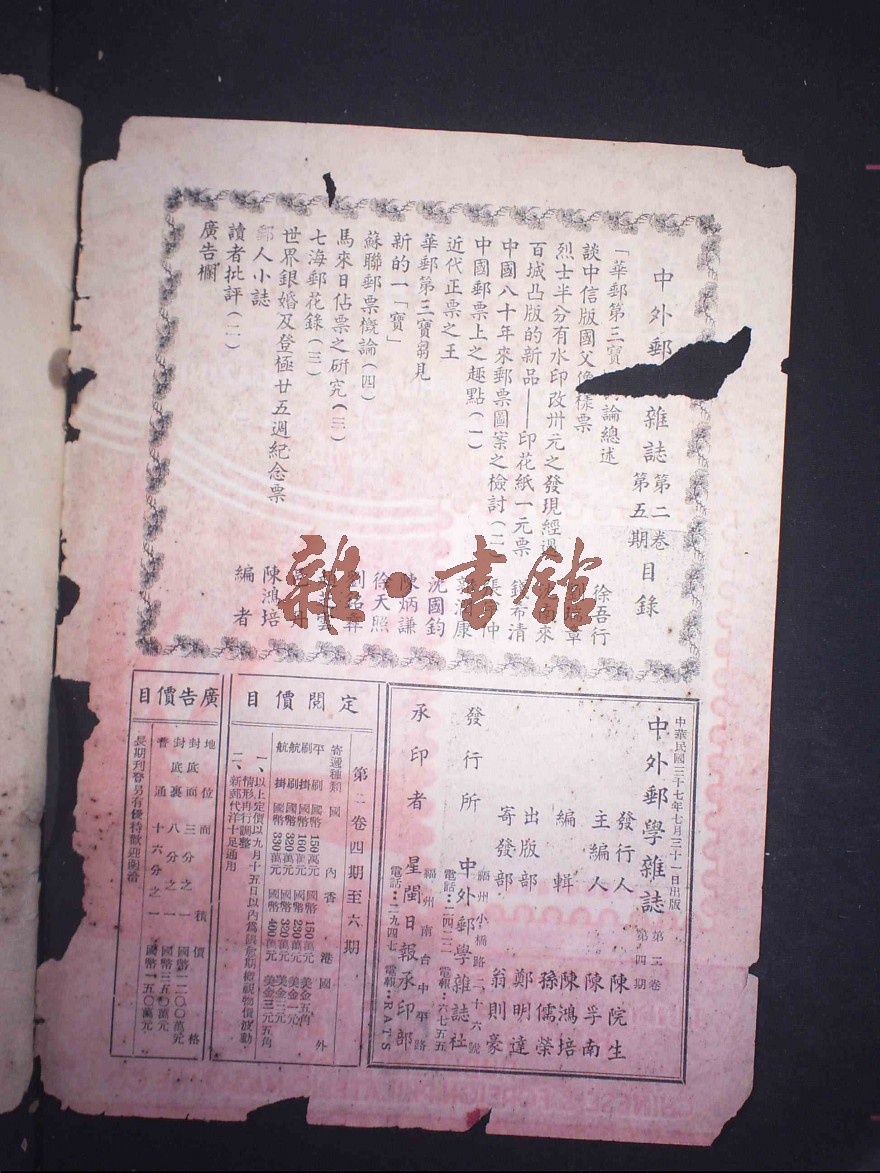 中外郵
雜誌第二卷第五期目錄
「華郵第三寶
論總述
徐吾行
談中信版國父像樣票
章
烈士半分有水印改卅元之發現經過
來
百城凸版的新品——印花紙一元票
錢希清
中國八十年來郵票圖案之檢討(二)
張
仲
中國郵票上之趣點(一)
郭潤康
近代正票之王
沈國鈞
華郵第三寶芻見
陳炳謙
新的一「寶」
徐天照
蘇聯郵票概論(四)
馬來日佔票之研究(三)
七海郵花錄(三)
世界銀婚及登極廿五週紀念票
陳鴻培
郵人小誌
編者
讀者批評(二)
廣告欄
中華民國三十七年七月三十一日出版
中外郵學雜誌 第二卷 第四期
發行人 陳院生
主編人 陳孚南
編輯 陳鴻培
孫儒榮
出版部 鄭明達
寄發部 翁則豪
發行所 中外郵學雜誌社
福州小橋路二十六號
電話:二四二二 電報:六七五五
承印者 星閩日報承印部
福州南台中平路
電話:二九四七 電報:RATS
定閱價目
第二卷四期至六期
寄遞種類 國內 香港 國外
平刷 國幣150萬元 國幣150萬元 美金五角
刷掛 國幣160萬元 國幣230萬元 美金一元
航刷 國幣320萬元 國幣320萬元 美金三元
航掛 國幣330萬元 國幣400萬元 美金三元五角
一、以上定價以九月十五日以內為限逾期概視物價波動情形再行調整
二、新郵代洋十足通用
廣告價目
地位 面積 價格
封底面 三分之一 國幣一二〇〇萬元
封底裏 八分之一 國幣三五〇萬元
普通 十六分之一 國幣一五〇萬元
長期刊登另有優待歡迎函洽
雜·書館